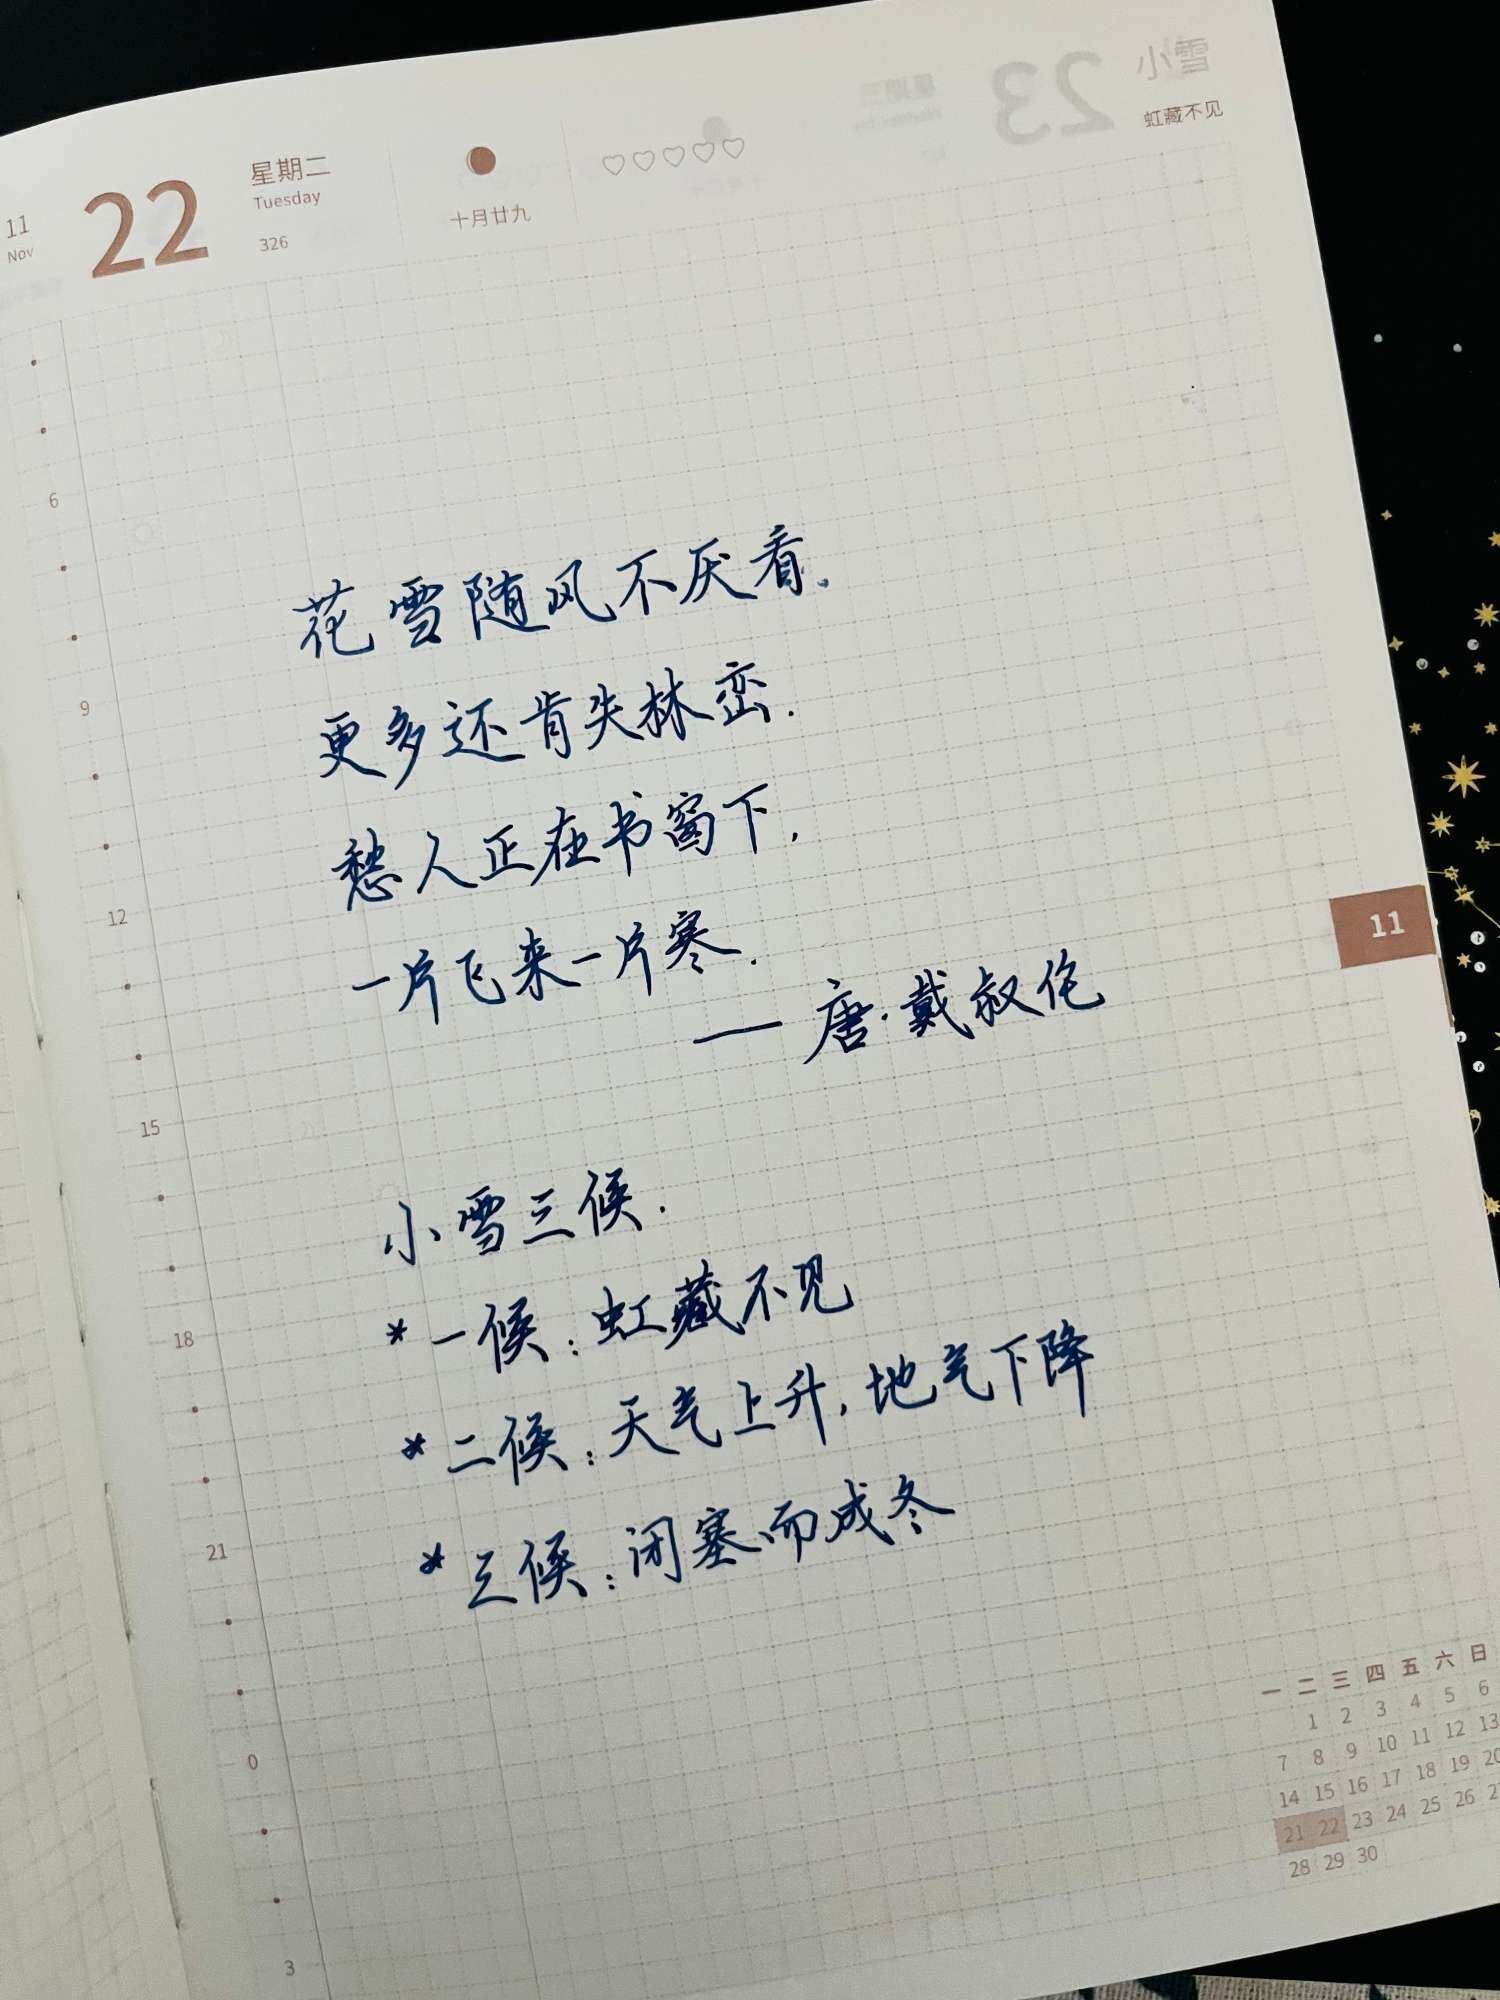 11
Nov
22
星期二
Tuesday
326
十月廿九
小雪
虹藏不见
6
9
12
15
18
21
0
3
花雪随风不厌看.
更多还肯失林峦.
愁人正在书窗下,
一片飞来一片寒.
—— 唐·戴叔伦
小雪三候.
* 一候:虹藏不见
* 二候:天气上升,地气下降
* 三候:闭塞而成冬
11
一 二 三 四 五 六 日
1 2 3 4 5 6
7 8 9 10 11 12 13
14 15 16 17 18 19 20
21 22 23 24 25 26
28 29 30